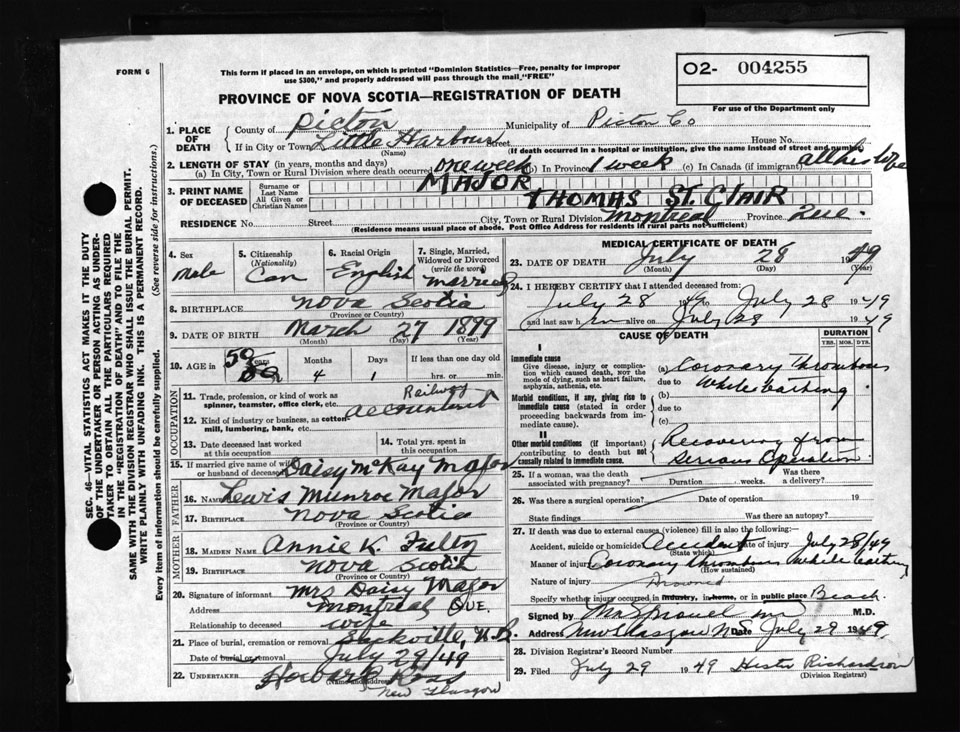 FORM 6
This form if placed in an envelope, on which is printed "Dominion Statistics—Free, penalty for improper
use $300," and properly addressed will pass through the mail "FREE"
O2- 004255
PROVINCE OF NOVA SCOTIA—REGISTRATION OF DEATH
For use of the Department only
1. PLACE OF DEATH
County of Pictou Municipality of Pictou Co
If in City or Town Little Harbour Street House No.
(Name) (If death occurred in a hospital or institution, give the name instead of street and number)
2. LENGTH OF STAY (in years, months and days)
(a) In City, Town or Rural Division where death occurred One week (b) In Province 1 week (c) In Canada (if immigrant) all his life
3. PRINT NAME OF DECEASED
Surname or Last Name MAJOR
All Given or Christian Names THOMAS ST. CLAIR
RESIDENCE No. Street City, Town or Rural Division Montreal Province Que.
(Residence means usual place of abode. Post Office Address for residents in rural parts not sufficient)
4. Sex Male
5. Citizenship (Nationality) Can
6. Racial Origin English
7. Single, Married, Widowed or Divorced (write the word) Married
8. BIRTHPLACE Nova Scotia
(Province or Country)
9. DATE OF BIRTH March 27 1899
(Month) (Day) (Year)
10. AGE in 50 Years Months 4 Days 1 If less than one day old hrs. or min.
OCCUPATION
11. Trade, profession, or kind of work as spinner, teamster, office clerk, etc. Railway Accountant
12. Kind of industry or business, as cotton mill, lumbering, bank, etc.
13. Date deceased last worked at this occupation
14. Total yrs. spent in this occupation
15. If married give name of wife or husband of deceased Daisy McKay Major
FATHER
16. NAME Lewis Munroe Major
17. BIRTHPLACE Nova Scotia
(Province or Country)
MOTHER
18. MAIDEN NAME Annie K.
19. BIRTHPLACE Nova Scotia
(Province or Country)
20. Signature of informant Mrs Daisy Major
Address Montreal QUE.
Relationship to deceased wife
21. Place of burial, cremation or removal Sackville, N.B.
Date of burial or removal July 29/49
22. UNDERTAKER Ross
(Name and Address) New Glasgow
MEDICAL CERTIFICATE OF DEATH
23. DATE OF DEATH July 28 1949
(Month) (Day) (Year)
24. I HEREBY CERTIFY that I attended deceased from:
July 28 1949 to July 28 1949
and last saw him alive on July 28 1949
CAUSE OF DEATH
DURATION
YRS. MOS. DYS.
I
Immediate cause
Give disease, injury or complication which caused death, not the mode of dying, such as heart failure, asphyxia, asthenia, etc.
(a) Coronary Thrombosis
due to While bathing
Morbid conditions, if any, giving rise to immediate cause (stated in order proceeding backwards from immediate cause).
(b)
due to
(c)
II
Other morbid conditions (if important) contributing to death but not causally related to immediate cause.
Recovering from
Serious Operation
25. If a woman, was the death associated with pregnancy? Duration weeks. Was there a delivery?
26. Was there a surgical operation? Date of operation 19
State findings Was there an autopsy?
27. If death was due to external causes (violence) fill in also the following:
Accident, suicide or homicide Accident Date of injury July 28/49
(State which)
Manner of injury Coronary thrombosis while bathing
(How sustained)
Nature of injury Drowned
Specify whether injury occurred in industry, in home, or in public place Beach
Signed by M.D.
Address New Glasgow N.S. Date July 29 1949
28. Division Registrar's Record Number
29. Filed July 29 1949 Richardson
(Division Registrar)
SEC. 46—VITAL STATISTICS ACT MAKES IT THE DUTY
OF THE UNDERTAKER OR PERSON ACTING AS UNDERTAKER
TO OBTAIN ALL THE PARTICULARS REQUIRED
IN THE "REGISTRATION OF DEATH" AND TO FILE THE
SAME WITH THE DIVISION REGISTRAR WHO SHALL ISSUE THE BURIAL PERMIT.
WRITE PLAINLY WITH UNFADING INK. THIS IS A PERMANENT RECORD.
Every item of information should be carefully supplied. (See reverse side for instructions.)